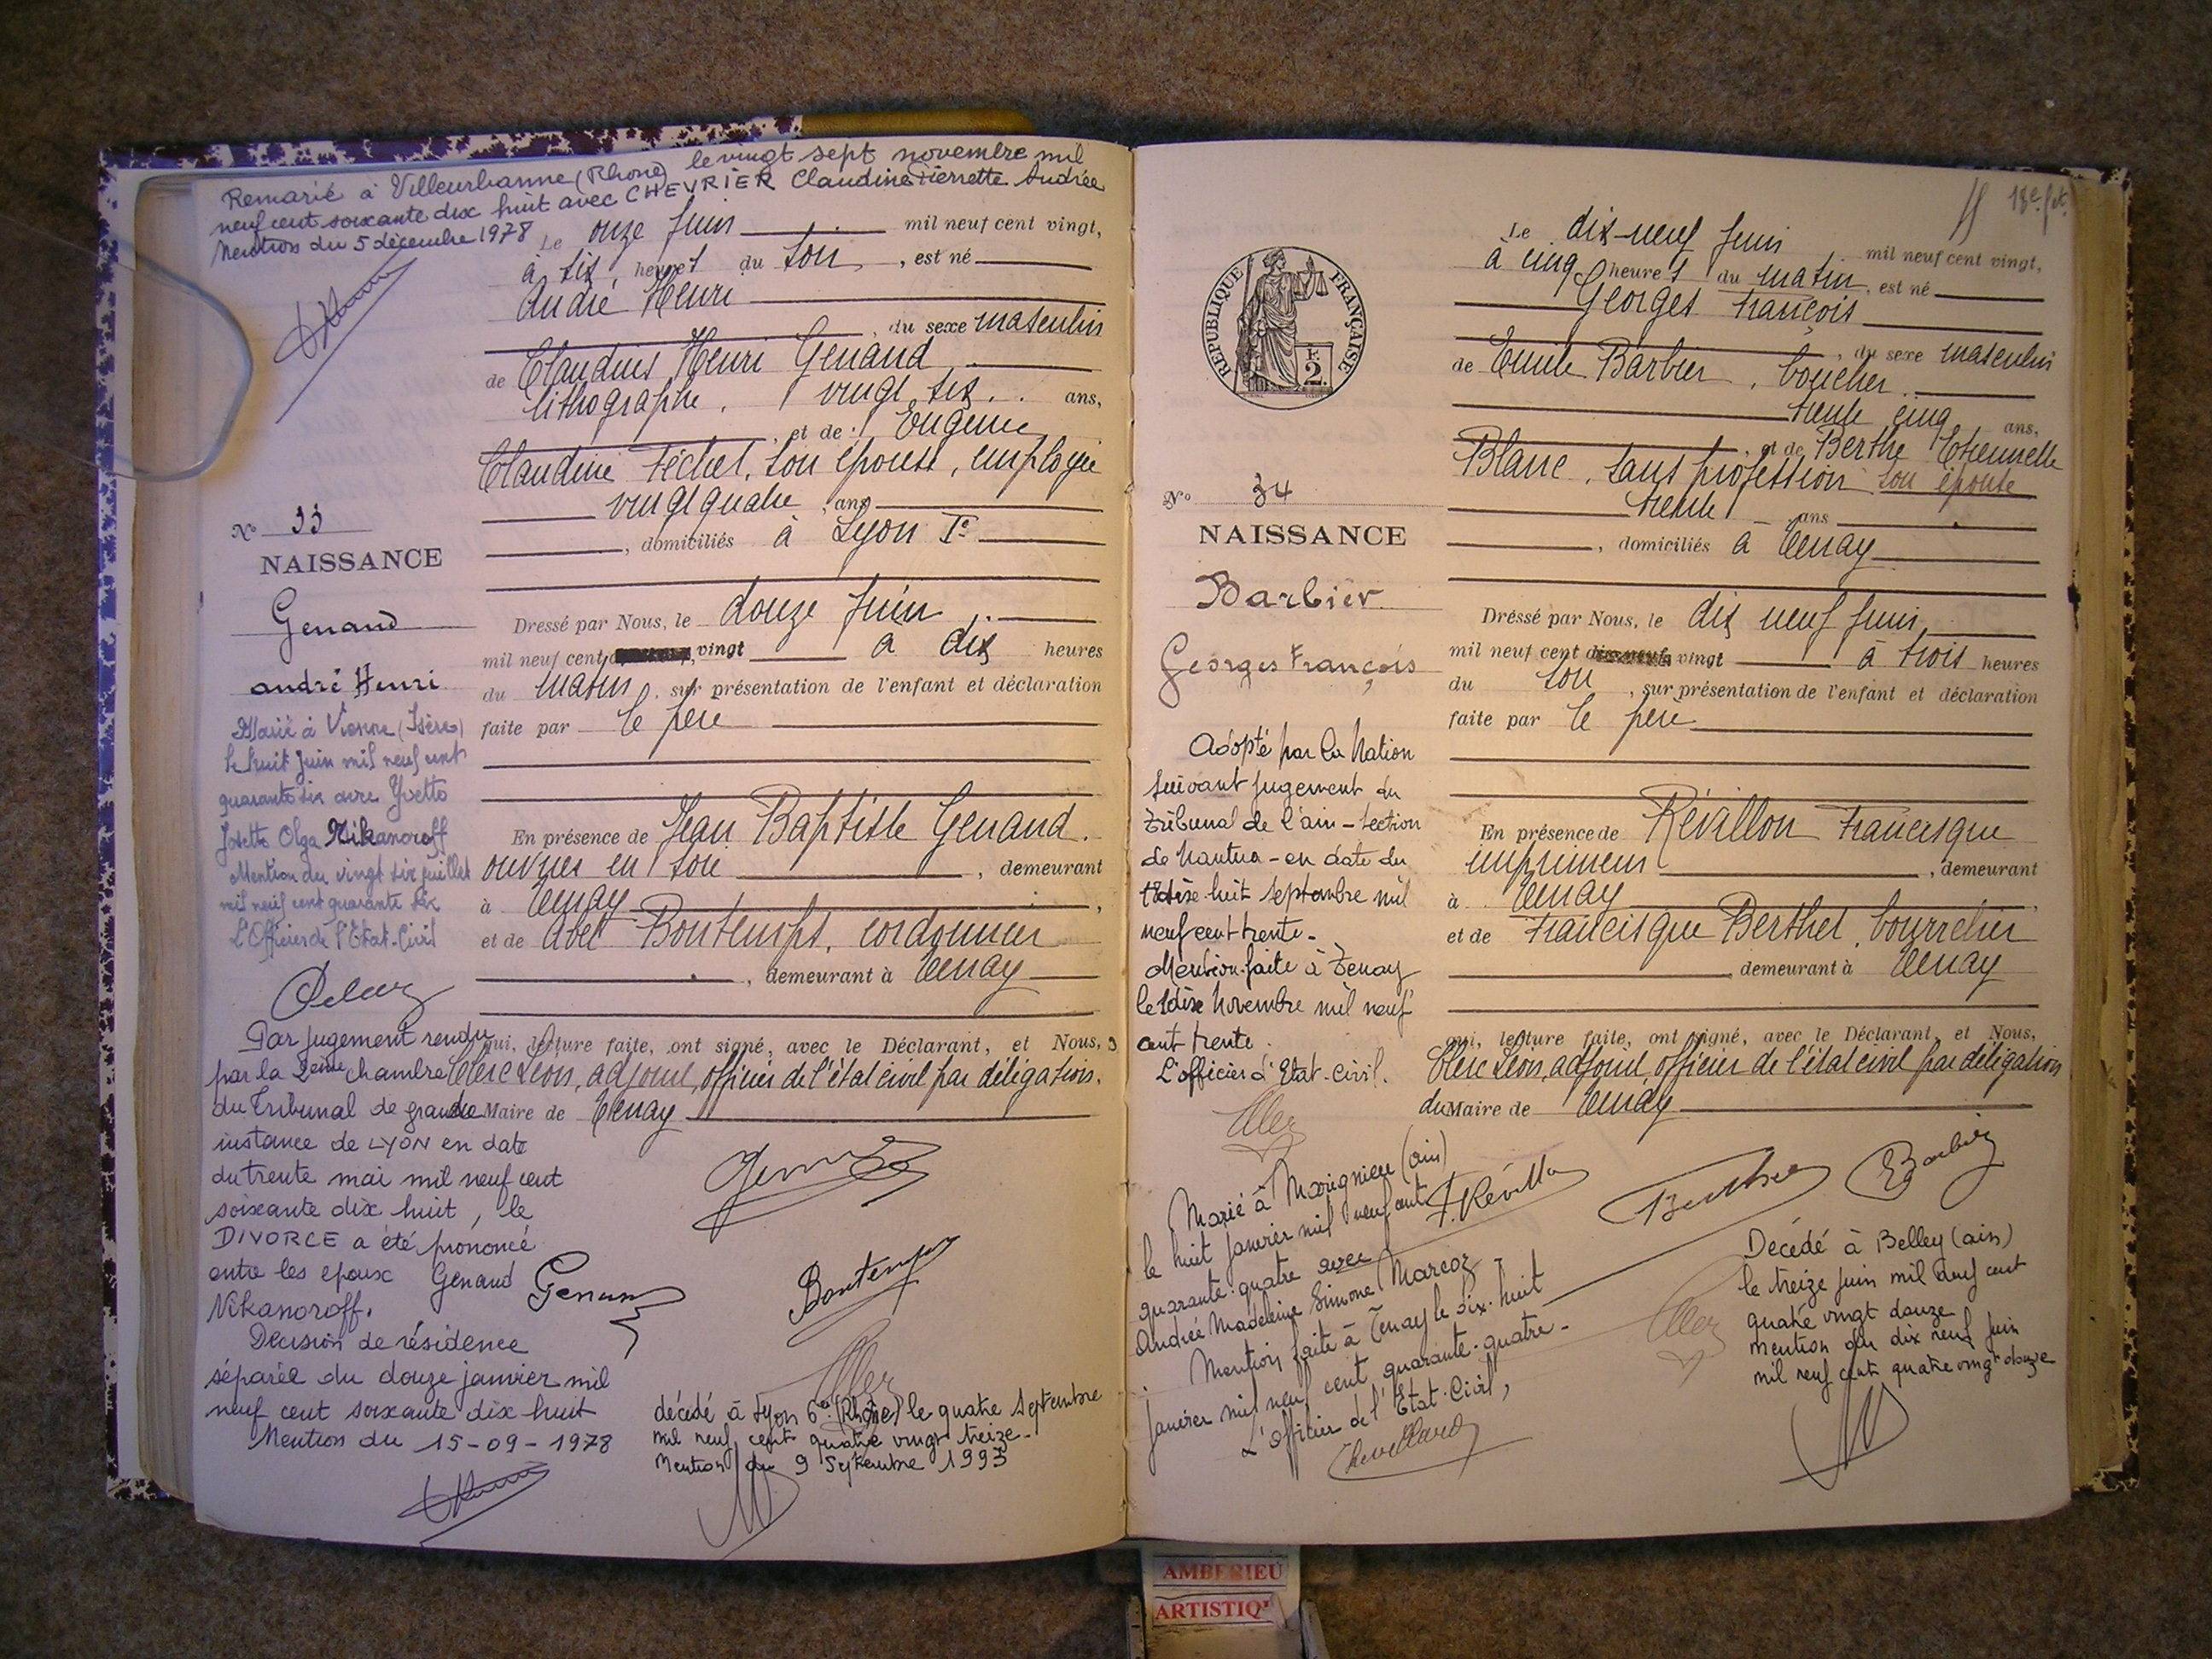 Remarié à Villeurbanne (Rhône) le vingt sept novembre mil
neuf cent soixante dix huit avec CHEVRIER Claudine Pierrette Andrée
Mention du 5 décembre 1978
Le onze Juin mil neuf cent vingt,
à six heures du soir, est né
André Henri
, du sexe masculin
de Claudius Henri Genand
lithographe, vingt six ans,
et de Eugénie
Claudine Féchet, son épouse, employée
vingt quatre ans
, domiciliés à Lyon 1e
No 33
NAISSANCE
Genand
André Henri
Dressé par Nous, le douze Juin
mil neuf cent vingt à dix heures
du matin, sur présentation de l'enfant et déclaration
faite par le père
En présence de Jean Baptiste Genand
ouvrier en soie, demeurant
à Tenay,
et de Abel Bontemps, cordonnier
, demeurant à Tenay
qui, lecture faite, ont signé, avec le Déclarant, et Nous,
Clerc Léon, adjoint, officier de l'état civil par délégation,
du Maire de Tenay
Marié à Vienne (Isère)
le huit Juin mil neuf cent
quarante six avec Yvette
Josette Olga Nikanoroff
Mention du vingt six juillet
mil neuf cent quarante six
L'Officier de l'Etat-Civil
Par jugement rendu
par la 2eme chambre
du Tribunal de grande
instance de LYON en date
du trente mai mil neuf cent
soixante dix huit, le
DIVORCE a été prononcé
entre les epoux Genand
Nikanoroff.
Décision de résidence
séparée du douze janvier mil
neuf cent soixante dix huit
Mention du 15-09-1978
Bontemps
décédé à Lyon 6e (Rhône) le quatre Septembre
mil neuf cent quatre vingt treize.
Mention du 9 Septembre 1993
18e f et.
Le dix-neuf Juin mil neuf cent vingt,
à cinq heures du matin, est né
Georges François
, du sexe masculin
de Emile Barbier, boucher
trente cinq ans,
et de Berthe Etiennette
Blanc, sans profession son épouse
trente ans
, domiciliés à Tenay
REPUBLIQUE FRANÇAISE
F.
2
No 34
NAISSANCE
Barbier
Georges François
Dressé par Nous, le dix neuf Juin
mil neuf cent dix-neuf vingt à trois heures
du soir, sur présentation de l'enfant et déclaration
faite par le père
En présence de Révillon Francisque
imprimeur, demeurant
à Tenay,
et de Francisque Berthet, bourrelier
demeurant à Tenay
qui, lecture faite, ont signé, avec le Déclarant, et Nous,
Clerc Léon, adjoint, officier de l'état civil par délégation
du Maire de Tenay
Adopté par la Nation
suivant jugement du
Tribunal de l'ain - section
de Nantua - en date du
dix-huit septembre mil
neuf cent trente.
Mention faite à Tenay
le dix Novembre mil neuf
cent trente.
L'officier d'Etat-civil.
Marié à Marignieu (ain)
le huit janvier mil neuf cent
quarante-quatre avec
Andrée Madeleine Simone Marcoz -
Mention faite à Tenay le dix-huit
janvier mil neuf cent quarante-quatre -
L'officier de l'Etat-Civil,
F. Révillon
Barbier
Décédé à Belley (ain)
le treize juin mil neuf cent
quatre vingt douze
mention du dix neuf juin
mil neuf cent quatre vingt douze
AMBERIEU
ARTISTIQ